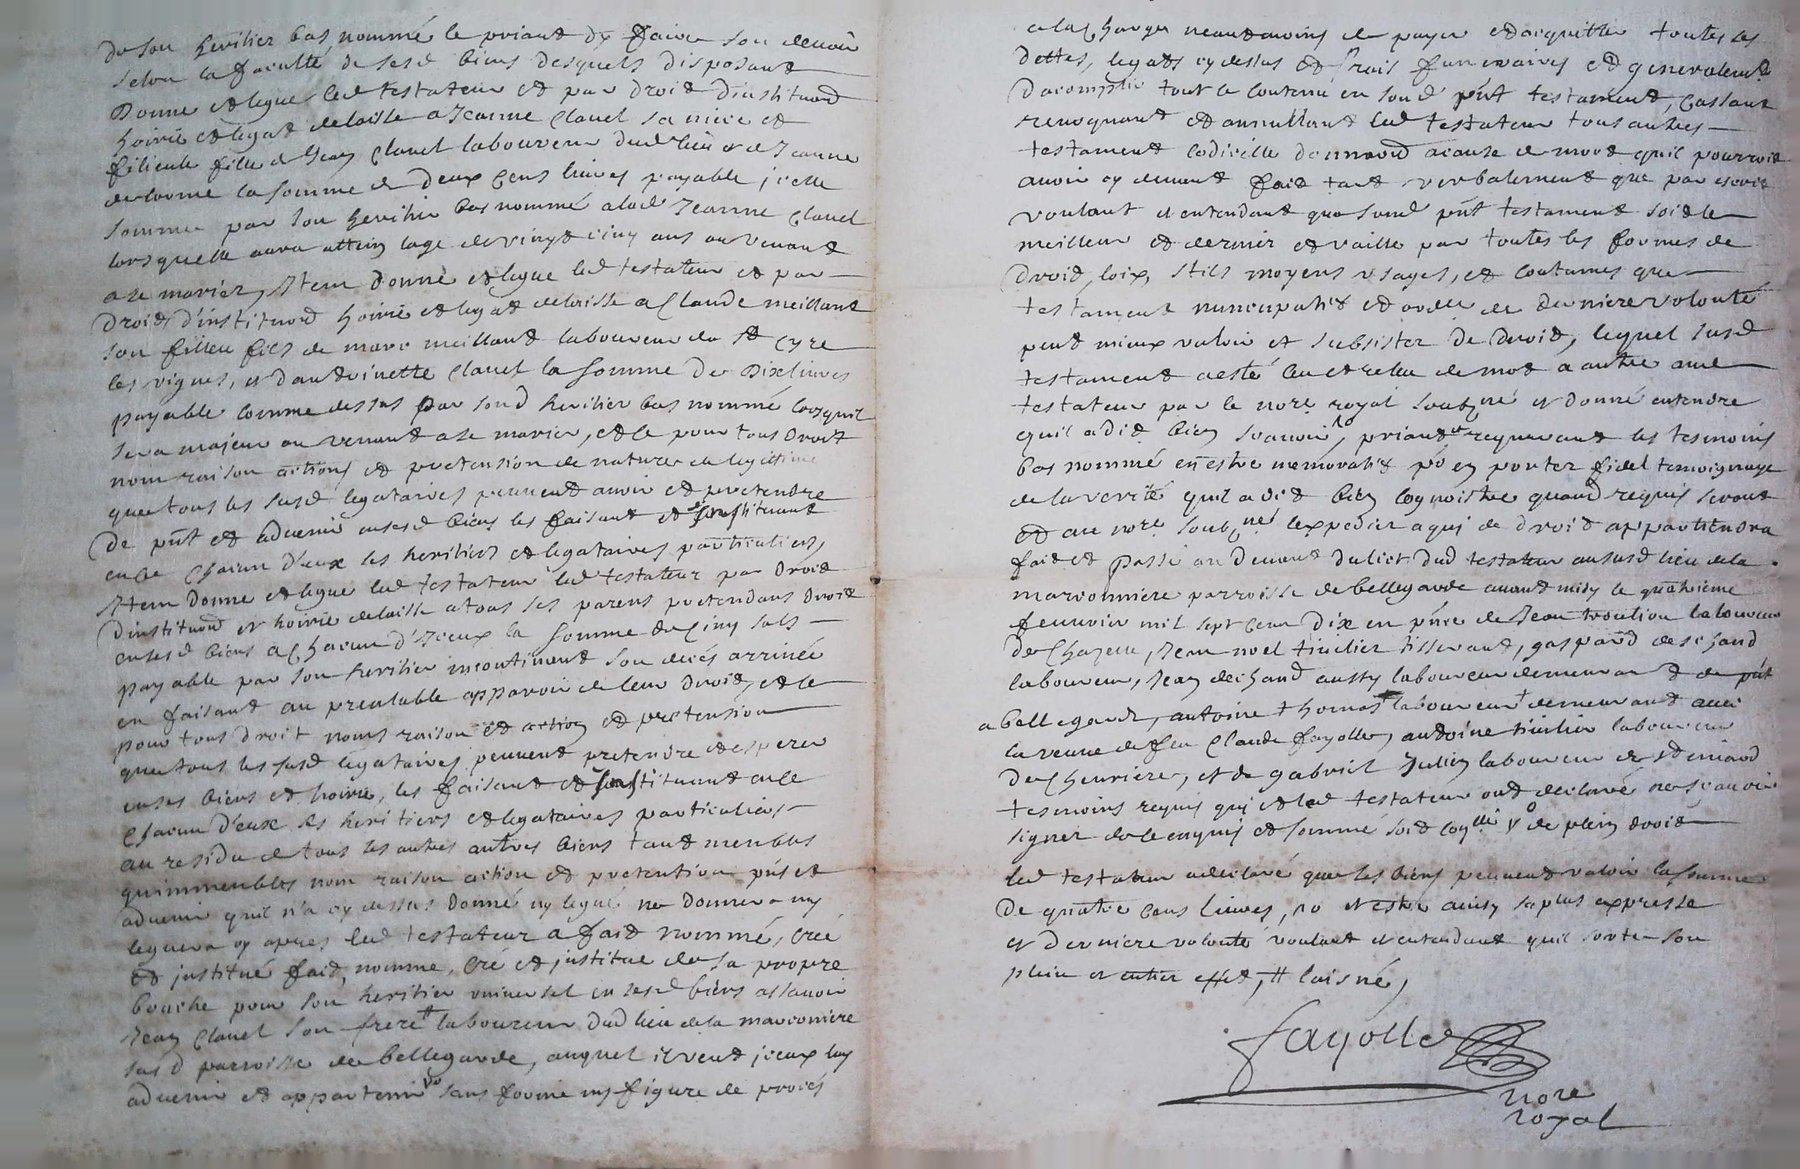 de son heritier bas nommé le priant dy faire son devoir
selon la faculté de sesd biens desquels disposant
Donne et legue led testateur et par droit dinstituaõn
hoirie et legat delaisse a Jeanne Clauel sa niece et
filieule fille de Jean Clauel laboureur dud lieu et de Jeanne
la somme de Deux Cens liures payable icelle
somme par son heritier bas nommé a lad Jeanne Clauel
lors quelle aura attein lage de vingt cinq ans ou venant
a se marier, Item donne et legue led testateur et par
Droit d'instituaõn hoirie et legat delaisse a Claude meillant
son filleu fils de marc meillant laboureur de St Cyre
les vignes, et dandoinette Clauel la somme de Dix liures
payable comme dessus par sond heritier bas nommé lorsquil
sera majeur ou venant a se marier, et ce pour tous Droit
nom raison actions et pretension de nature de legitime
que tous les susd legataires peuuent auoir et pretendre
de pñt et aduenir en sesd biens les faisant et Jnstituant
en ce chacun d'eux ses heritiers et legataires particuliers,
Item donne et legue led testateur led testateur par Droit
dinstituaõn et hoirie delaisse a tous ses parens pretendans Droit
en sesd biens a chacun d'Iceux la somme de Cinq sols
payable par son heritier incontinent son decés arriué
en faisant au prealable apparoir de leur droit, et ce
pour tous droit noms raison et action et pretension
que tous les susd legataires peuuent pretendre et esperer
en ses biens et hoirie, les faisant et Jnstituant en ce
chacun d'eux ses heritiers et legataires particuliers
au residu de tous les autres autres biens tant meubles
quimmeubles nom raison action et pretention pñs et
aduenir quil n'a cy dessus donné ny legué ne donnera ny
leguera cy apres led testateur a fait nommé, creé
et justitué fait, nomme, cre et justitue de sa propre
bouche pour son heritier uniuersel en sesd biens assauoir
Jean Clauel son frere # laboureur dud lieu de la marconniere
susd parroisse de bellegarde, auquel il veut jceux luy
aduenir et appartenir sans forme ny figure de procés
a la Charge neantmoins de payer et acquitter toutes ses
Dettes, legats cy dessus et frais funeraires et generalement
Dacomplir tout le contenu en sond pñt testament, Cassant
reuoquant et annullant led testateur tous autres
testament codicille donnaõn a cause de mort quil pourroit
auoir cy deuant fait tant verbalement que par escrit
voulant et entendant que sond pñt testament soit le
meilleur et dernier et vaille par toutes les formes de
Droit, loix, stils moyens usages, et coutumes que
testament nuncupatif et ordre de derniere volonté
peut mieux valoir et subsister de Droit, lequel susd
testament a esté leu et releu de mot a autre aud
testateur par le nore royal soubzné et donné entendre
quil a dit bien scauoir, priant et requerant les tesmoins
bas nommé en estre memoratif po en porter fidel temoignage
de la verité quil a dit bien cognoistre quand requis seront
et au nore soubzné lexpedier a qui de droit appartiendra
fait et passé au deuant du lict dud testateur au susd lieu de la
marconniere parroisse de bellegarde auant midy le quatrieme
feurier mil sept cent Dix en pñce de Jean laboureur
De Chazelle, Jean noel tisserant, gaspard dechand
laboureur, Jean dechand aussy laboureur demeurant de pñt
a bellegarde, antoine thomas laboureur demeurant auec
la veuue de feu Claude fayolle, andoine laboureur
De Cheurieres, et de gabriel Julien laboureur de St
tesmoins requis qui et led testateur ont declaré ne scauoir
signer de ce enquis et sommé soit de plein droit
led testateur a declaré que ses biens peuuent valoir la somme
De quatre cens liures, et estre ainsy sa plus expresse
et Derniere volonté voulant et entendant quil sorte son
plein et entier effet, # laisné,
fayolle
nore
royal